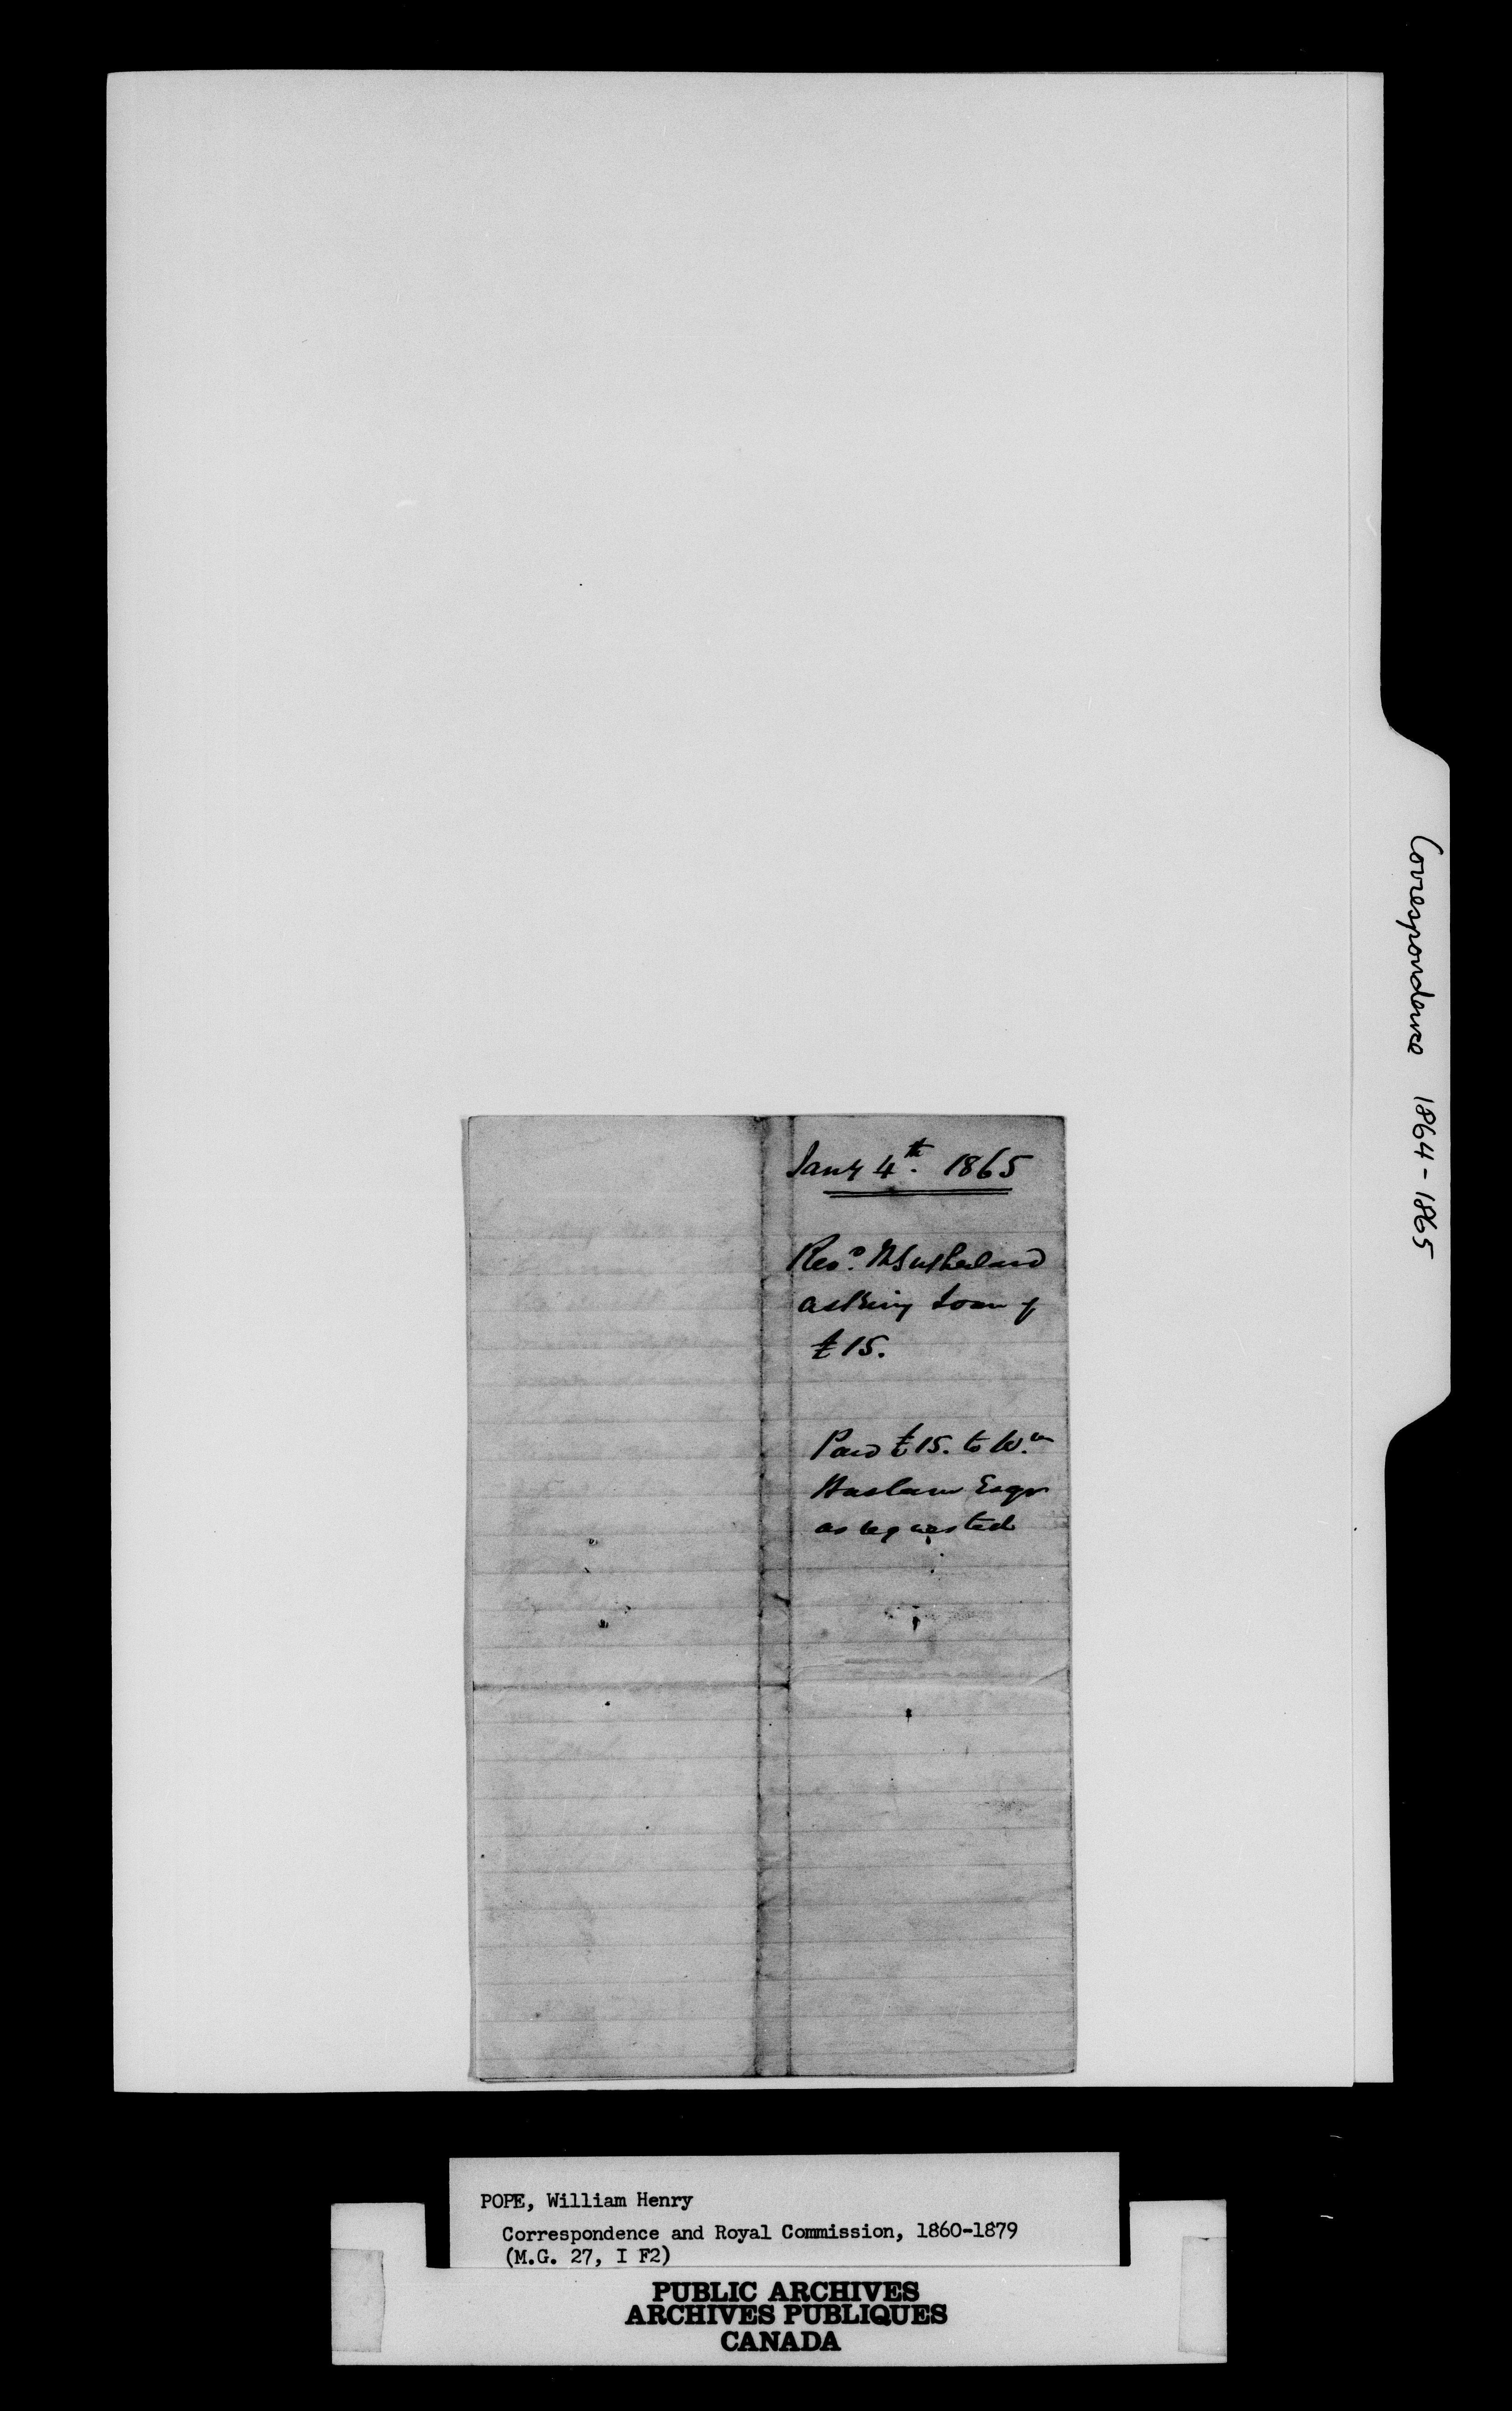 Jany 4th. 1865
Revd. Sutherland
asking Loan of
£15.
Paid £15. to Wm
Haslam Esqr
as requested
Correspondence 1864-1865
POPE, William Henry
Correspondence and Royal Commission, 1860-1879
(M.G. 27, I F2)
PUBLIC ARCHIVES
ARCHIVES PUBLIQUES
CANADA